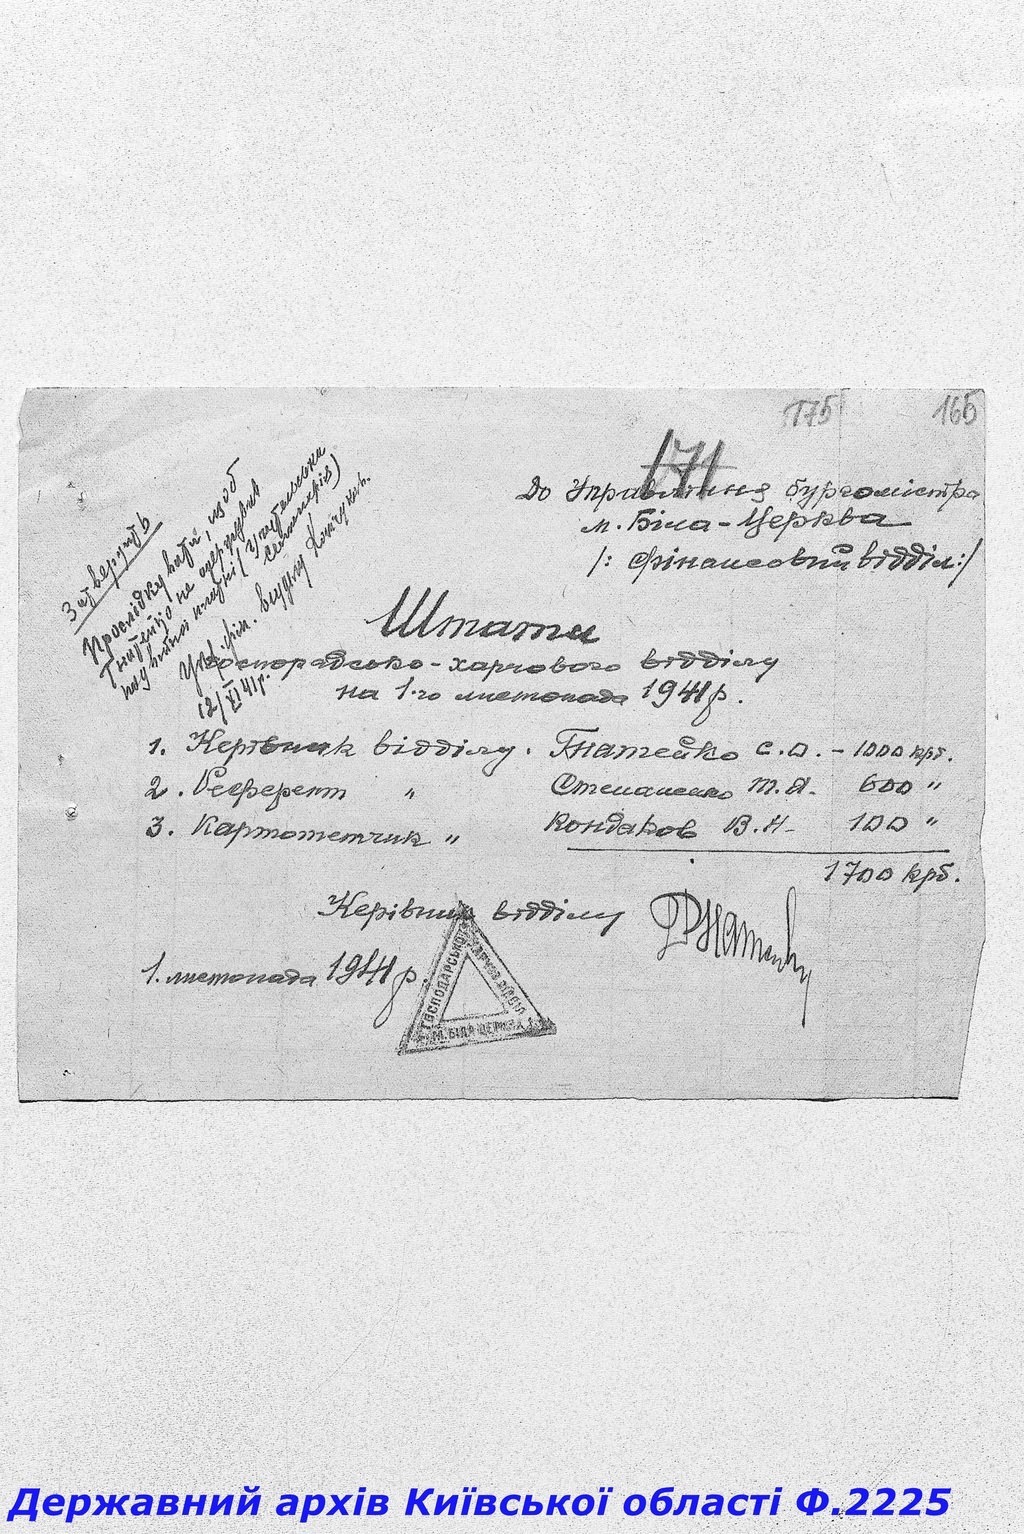 175 165
171
До Управління бургомістра
м. Біла-Церква
/: Фінансовий відділ :/
Затвердить
Прослідкувати, щоб
Гнатейко не одержував
подвійної платні /
Кер. фін. відділу
12/XI 41р.
Штати
господарсько-харчового відділу
на 1-го листопада 1941р.
1. Керівник відділу. Гнатейко С.О. - 1000 крб.
2. Референт " Степаненко Т.Я. 600 "
3. Картотетчик " Кондаков В.Н. 100 "
1700 крб.
Керівник відділу
1. листопада 1941 р.
ГОСПОДАРСЬКО
ХАРЧОВ. ВІДДІЛ
М. БІЛА ЦЕРКВА
Державний архів Київської області Ф.2225